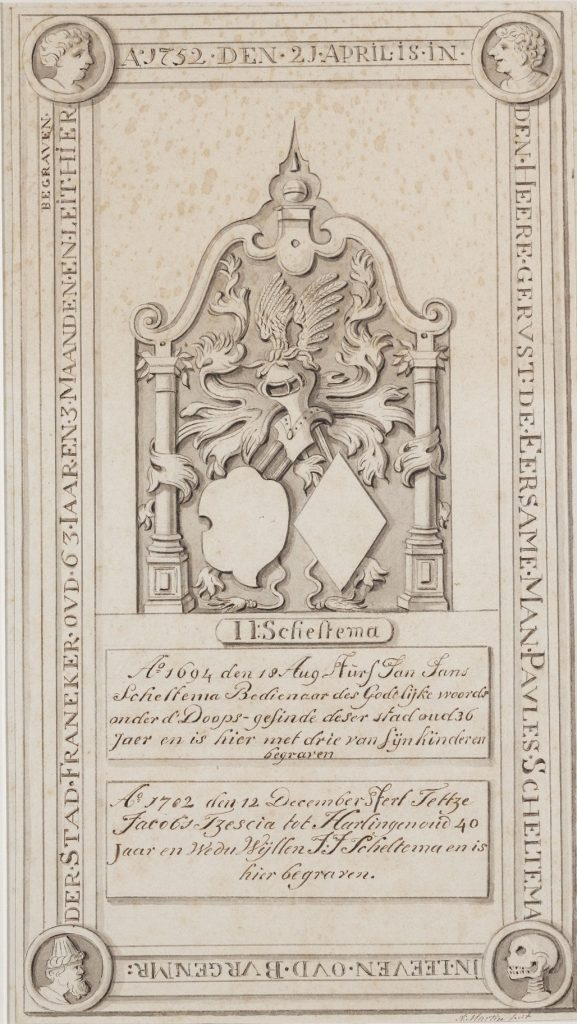 A° 1752 · DEN · 21 · APRIL · IS · IN ·
DEN · HEERE · GERVST · DE · EERSAME · MAN · PAVLES · SCHELTEMA
IN · LEEVEN · OVD · BVRGENMR:
DER · STAD · FRANEKER · OVD · 63 · IAAR · EN · 3 · MAANDEN · EN · LEIT · HIER
BEGRAVEN ·
I I: Scheltema
A° 1694 den 18 Aug Jan Jans
Scheltema Bedienaar des Godelijke woords
onder d' Doops-gesinde deser stad oud 36
Jaer en is hier met drie van sijn kinderen
begraven
A° 1702 den 12 December sterf Tettze
Jacobs tot Harlingen oud 40
Jaar en Wedu Wyllen J: J Scheltema en is
hier begraven.
N. Martin